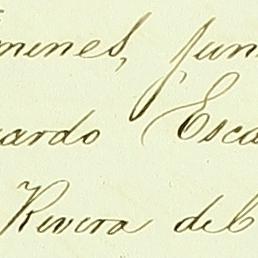 menes, jun
ardo Esca
Rivera del